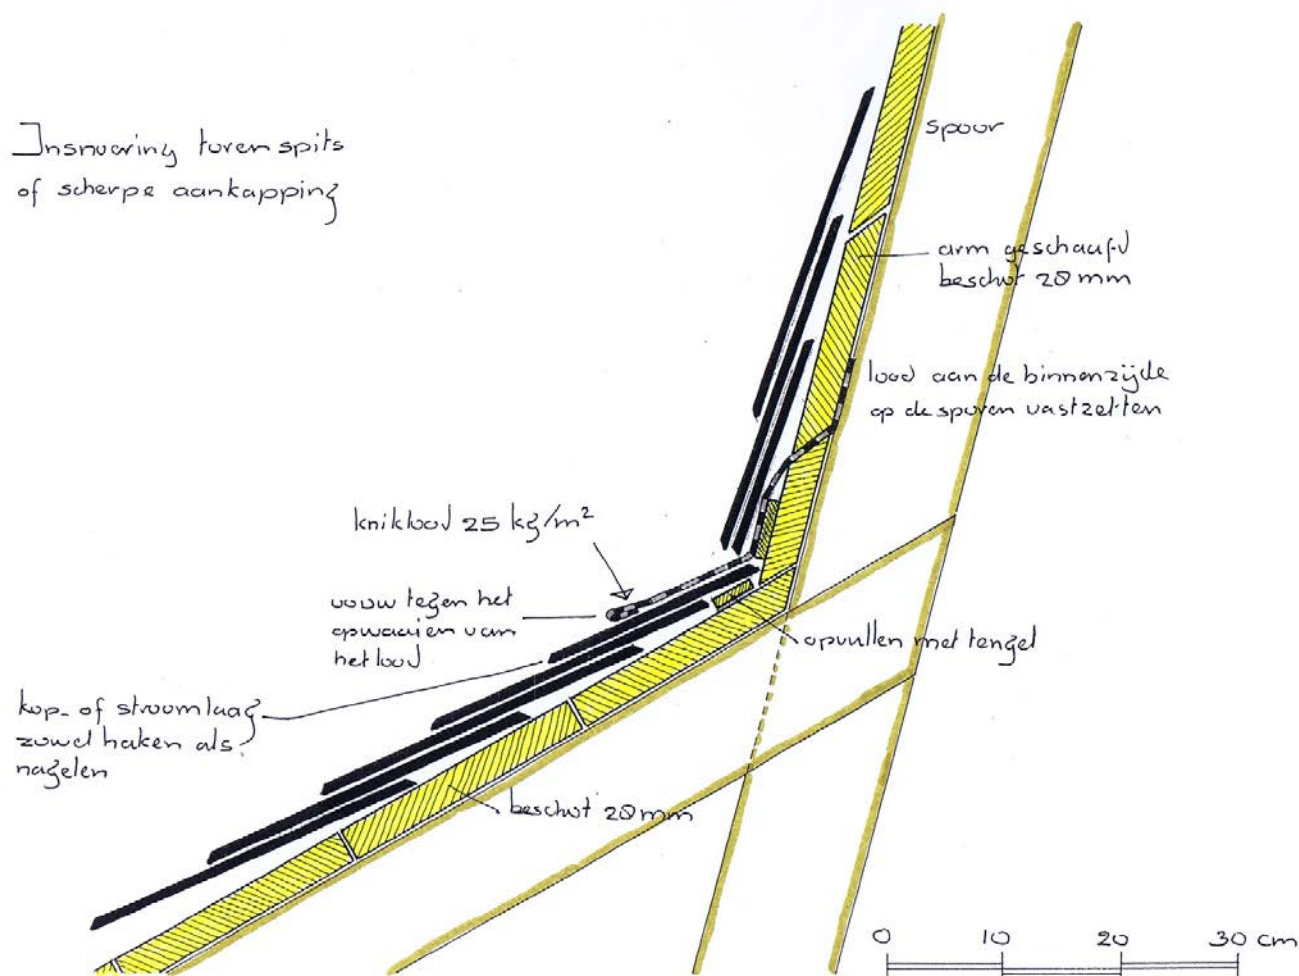 Insnoering torenspits
of scherpe aankapping
spoor
arm geschaafd
beschot 28 mm
lood aan de binnenzijde
op de sporen vastzetten
kniklood 25 kg/m²
vouw tegen het
opwaaien van
het lood
opvullen met tengel
kop- of stroomlaag
zowel haken als
nagelen
beschot 28 mm
0 10 20 30 cm